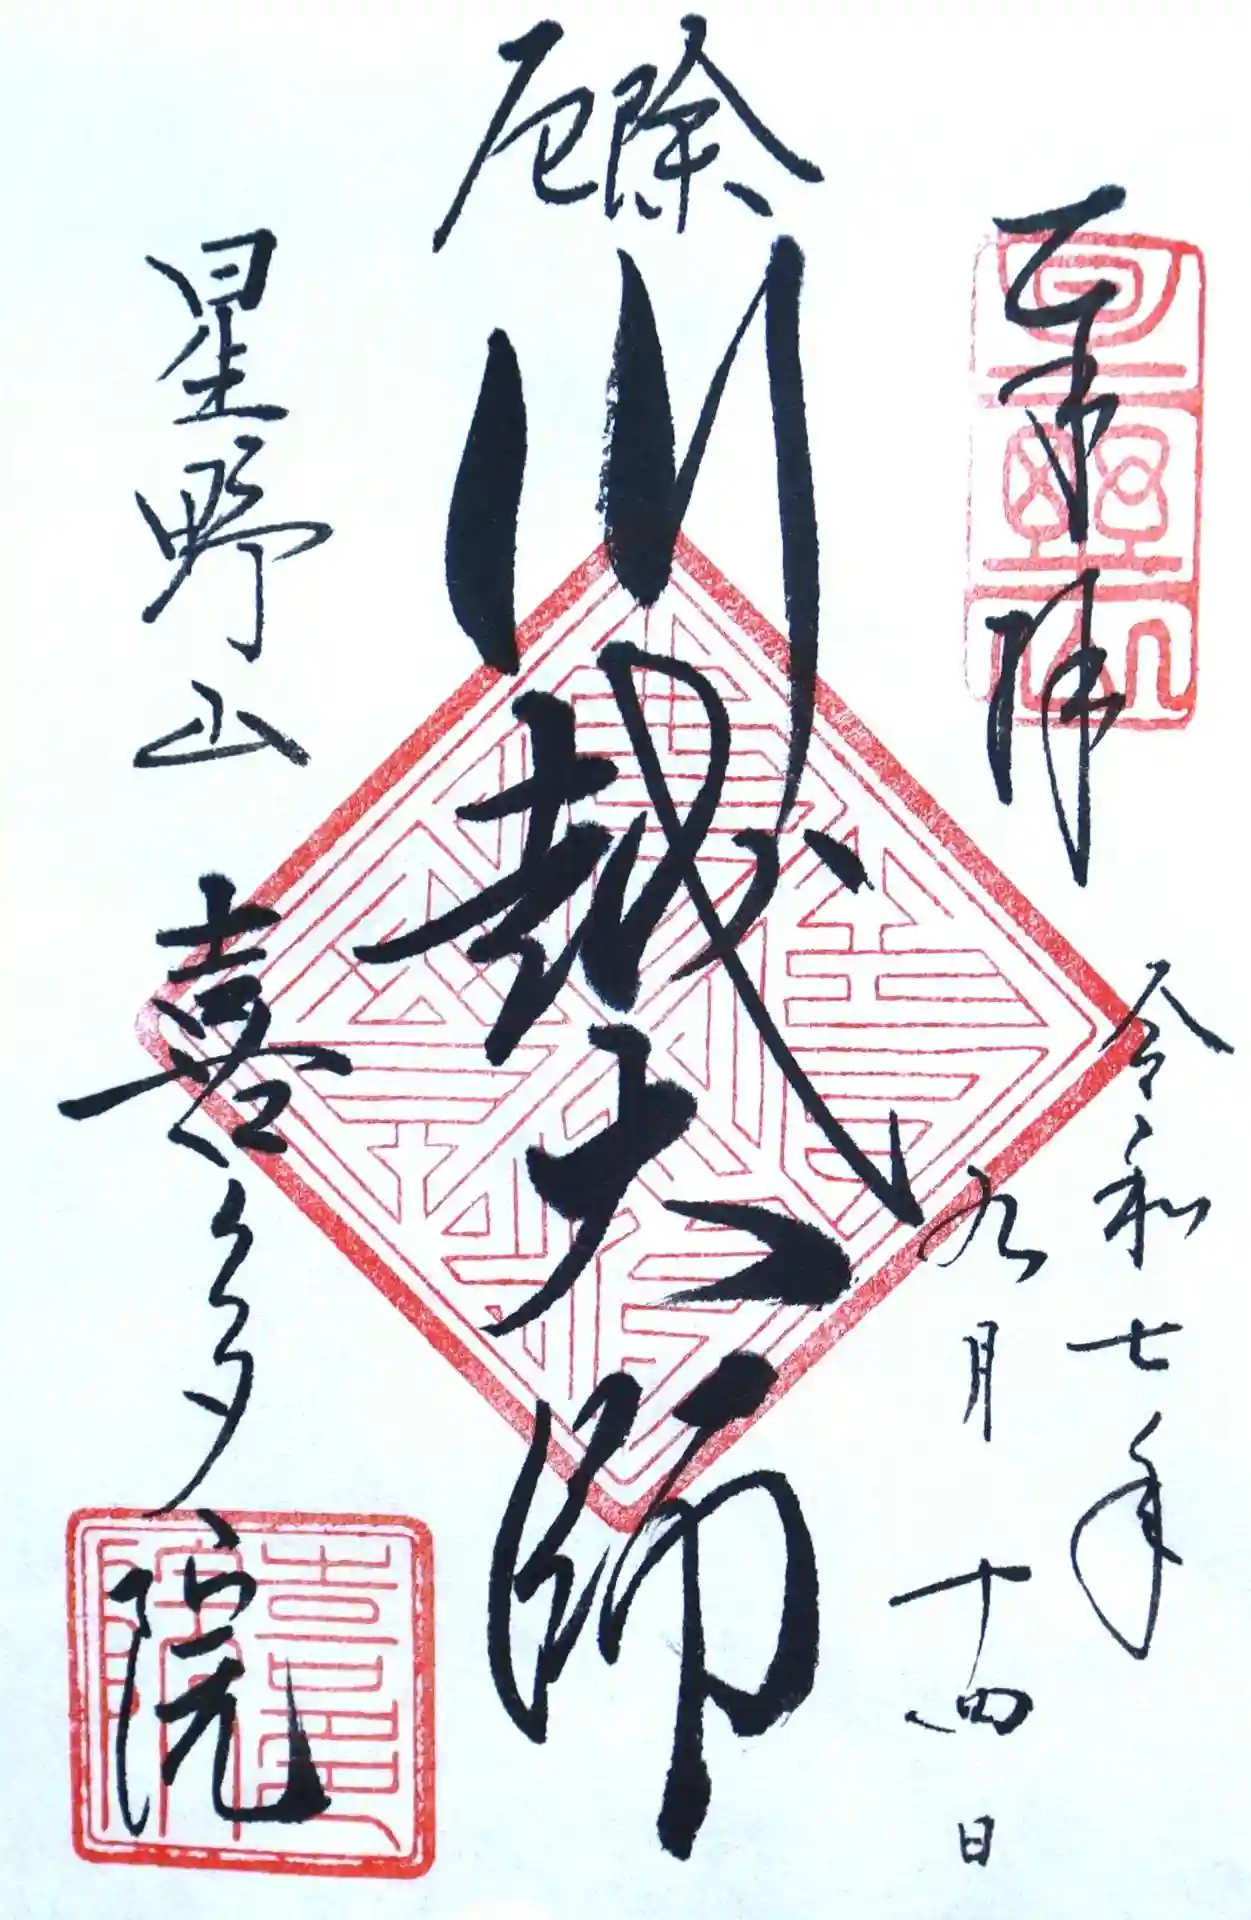 奉拝
令和七年
九月十四日
厄除
川越大師
星野山
喜多院
喜多院